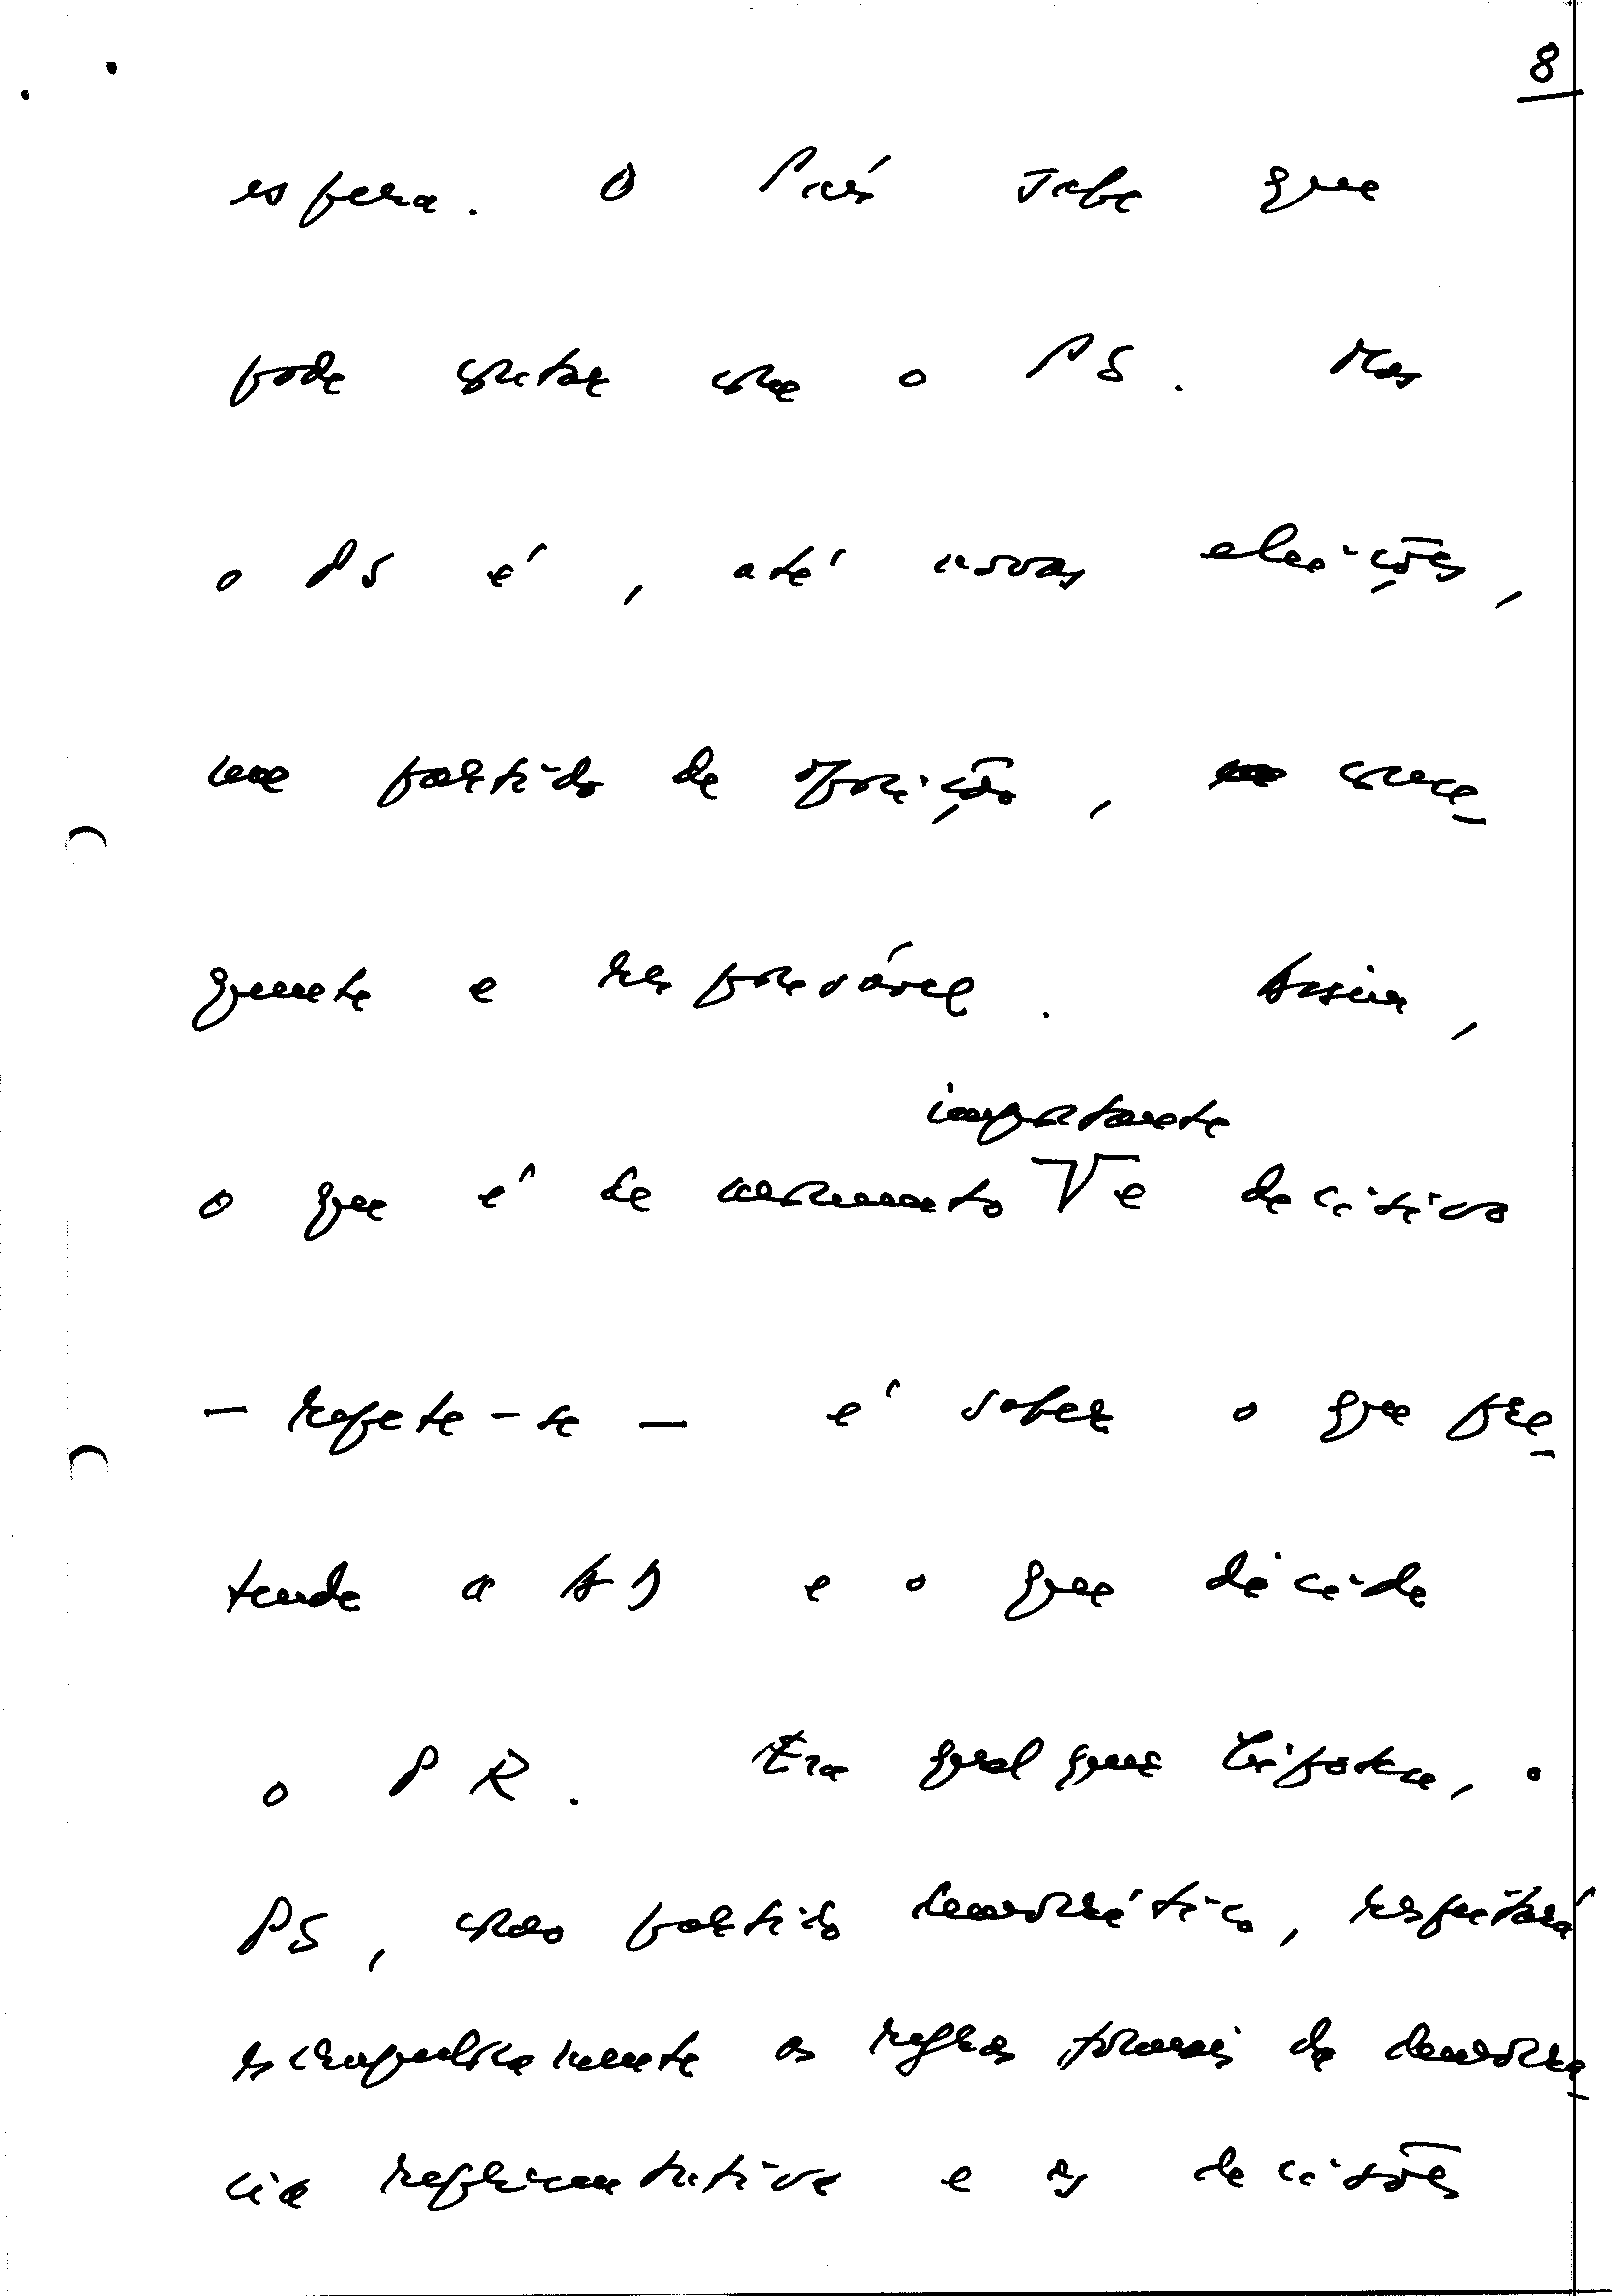 8
espera. O País sabe que
pode contar com o PS. Mas
o PS é, até novas eleições,
um partido de oposição, conse_
quente e responsável. Assim,
importante
o que é de momento V e decisivo
– repete-se – é saber o que pre_
tende a AD e o que decide
o PR. Em qualquer hipótese, o
PS, como partido democrático, respeitará
escrupulosamente as regras formais da democra_
cia representativa e as decisões